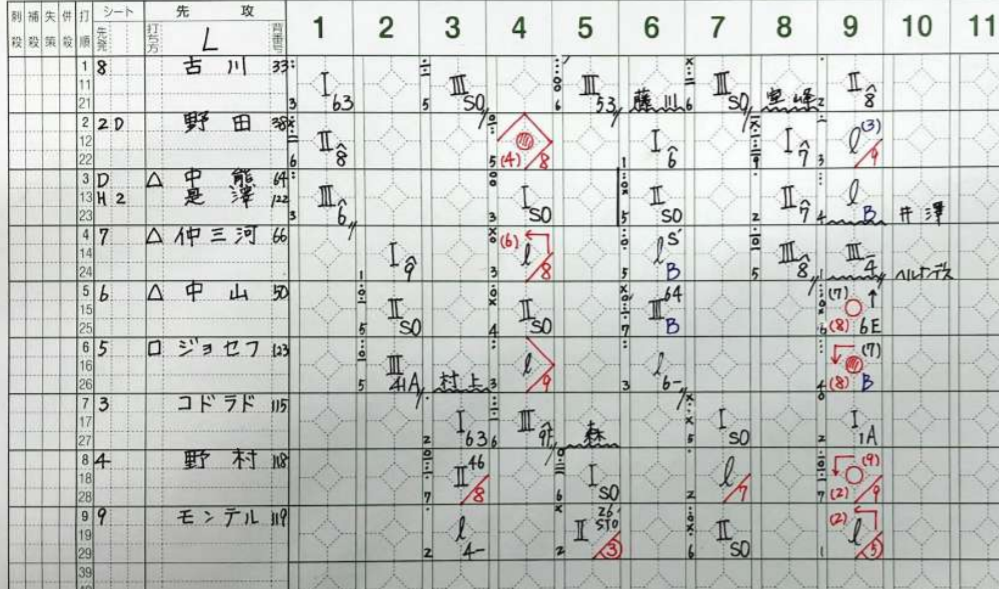 刺殺 補殺 失策 併殺 打順 シート 先発 先攻 打ち方 L 背番号 1 2 3 4 5 6 7 8 9 10 11
1 11 21 8 古川 33 3 I 63 5 III SO 6 III 53 藤川 6 III SO 2 II 8
2 12 22 2 D 野田 38 6 II 8 5 (4) 8 1 I 6 I 7 3 l (3) 9
3 13 23 D H 2 △ 中熊 64 是澤 122 3 III 6 3 I SO 5 II SO 2 II 7 4 l B 井澤
4 14 24 7 △ 仲三河 66 1 I 9 3 (6) l 8 5 l S' B 5 III 8 III 4 ヘルナンデス
5 15 25 6 △ 中山 50 5 II SO 4 II SO 7 III 64 B 6 (7) (8) 6E
6 16 26 5 □ ジョセフ 123 5 III 41A 村上 3 l 9 3 l 6- 4 (7) (8) B
7 17 27 3 コドラド 115 2 I 63 6 III 9f 森 5 I SO 2 I 1A
8 18 28 4 野村 118 7 II 46 8 6 I SO 2 l 7 7 (9) (2) 9
9 19 29 9 モンテル 119 2 l 4- 2 II 26' STO 3 6 II SO 1 (2) l 5
39